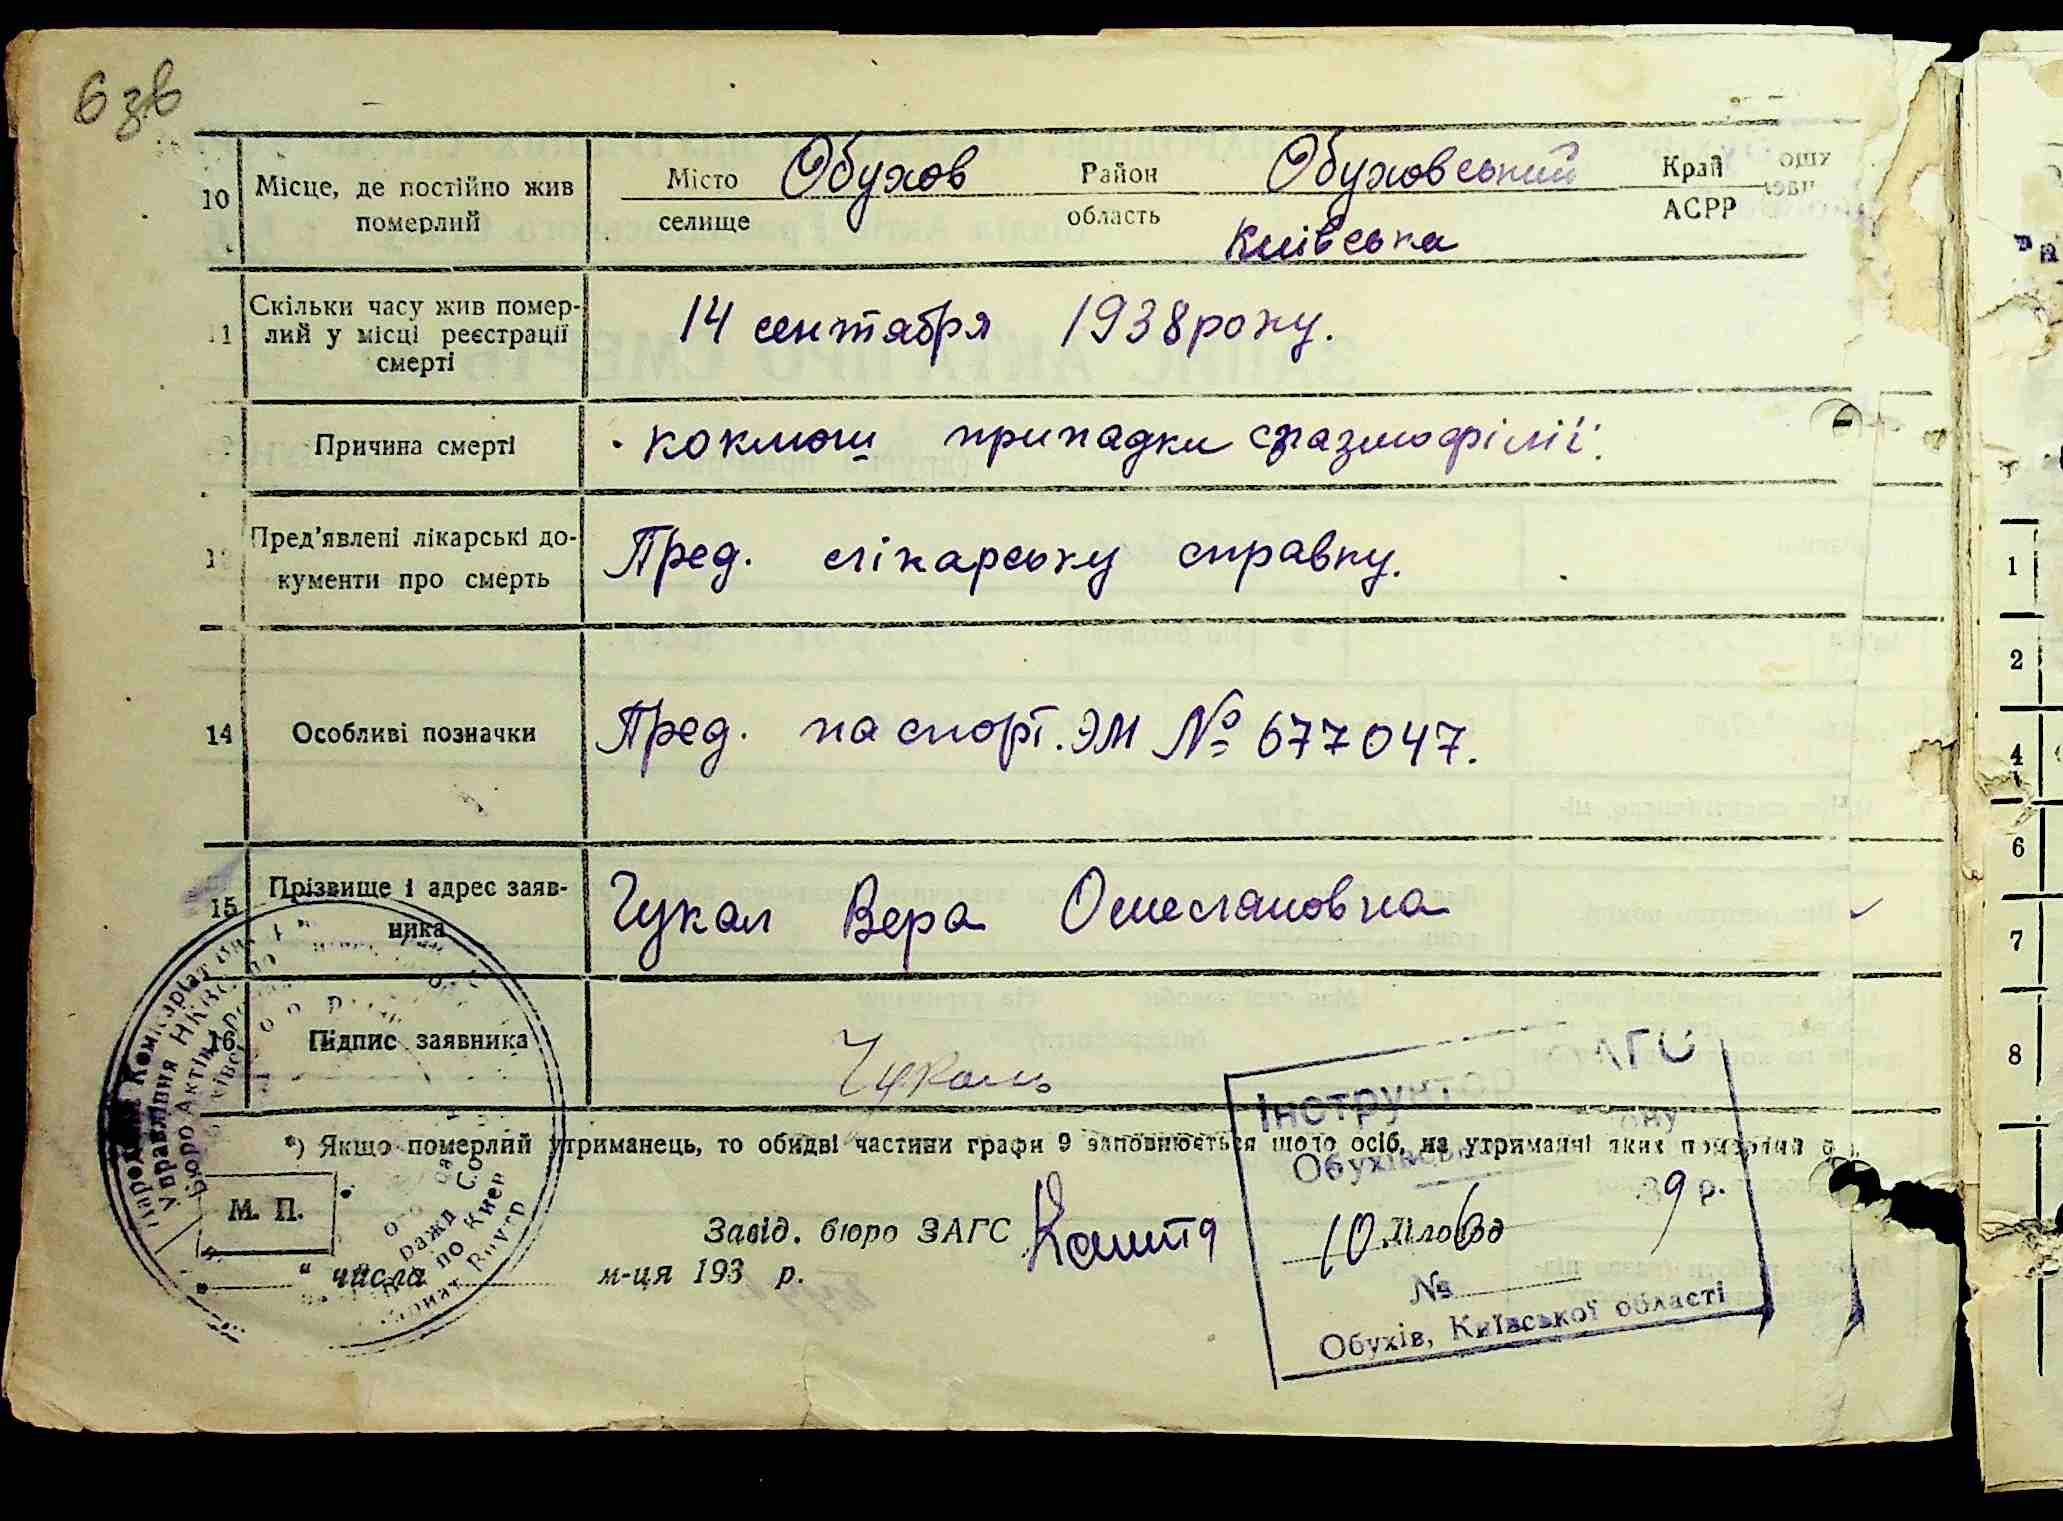 6 зв
10 Місце, де постійно жив померлий
Місто Обухов Район Обуховський Край
селище область Київська АСРР
11 Скільки часу жив помер-
лий у місці реєстрації
смерті
14 сентября 1938 року.
Причина смерті коклюш припадки спазмофілії.
Пред'явлені лікарські до-
кументи про смерть
Пред. лікарську справку.
14 Особливі позначки Пред. паспорт. ЭМ № 677047.
15 Прізвище і адрес заяв-
ника
Чукал Вера Омеляновна
16. Підпис заявника Чукаль
*) Якщо померлий утриманець, то обидві частини графи 9 заповнюється щодо осіб, на утриманні яких померлий
М. П.
Завід. бюро ЗАГС
" числа м-ця 193 р.
Народний Комісаріат
Управління НКВС
Бюро Актів
Інструктор АГС
Обухівськ
10 39 р.
№
Обухів, Київської області
1
2
4
6
7
8